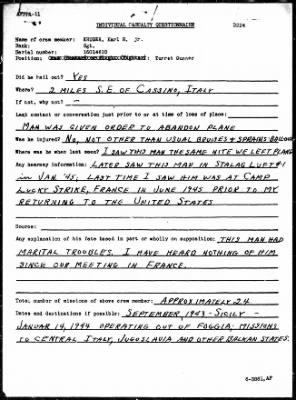 AFPPA-11
INDIVIDUAL CASUALTY QUESTIONNAIRE
Name of crew member: KRUGER, Karl H. Jr.
Rank: Sgt.
Serial number: 16014610
Position: Turret Gunner
Did he bail out? YES
Where? 2 MILES S.E. OF CASSINO, ITALY
If not, why not? -
Last contact or conversation just prior to or at time of loss of plane:
MAN WAS GIVEN ORDER TO ABANDON PLANE
Was he injured? NO, NOT OTHER THAN USUAL BRUISES & SPRAINS
Where was he when last seen? I SAW THIS MAN THE SAME NITE WE LEFT PLANE
Any hearsay information: LATER SAW THIS MAN IN STALAG LUFT #1
IN JAN '45; LAST TIME I SAW HIM WAS AT CAMP
LUCKY STRIKE, FRANCE IN JUNE 1945 PRIOR TO MY
RETURNING TO THE UNITED STATES
Source:
Any explanation of his fate based in part or wholly on supposition: THIS MAN HAD
MARITAL TROUBLES. I HAVE HEARD NOTHING OF HIM
SINCE OUR MEETING IN FRANCE.
Total number of missions of above crew member: APPROXIMATELY 24
Dates and destinations if possible: SEPTEMBER, 1943 - SICILY -
JANUAR 14, 1944 OPERATING OUT OF FOGGIA; MISSIONS
TO CENTRAL ITALY, JUGOSLAVIA AND OTHER BALKAN STATES.
6-3861, AF